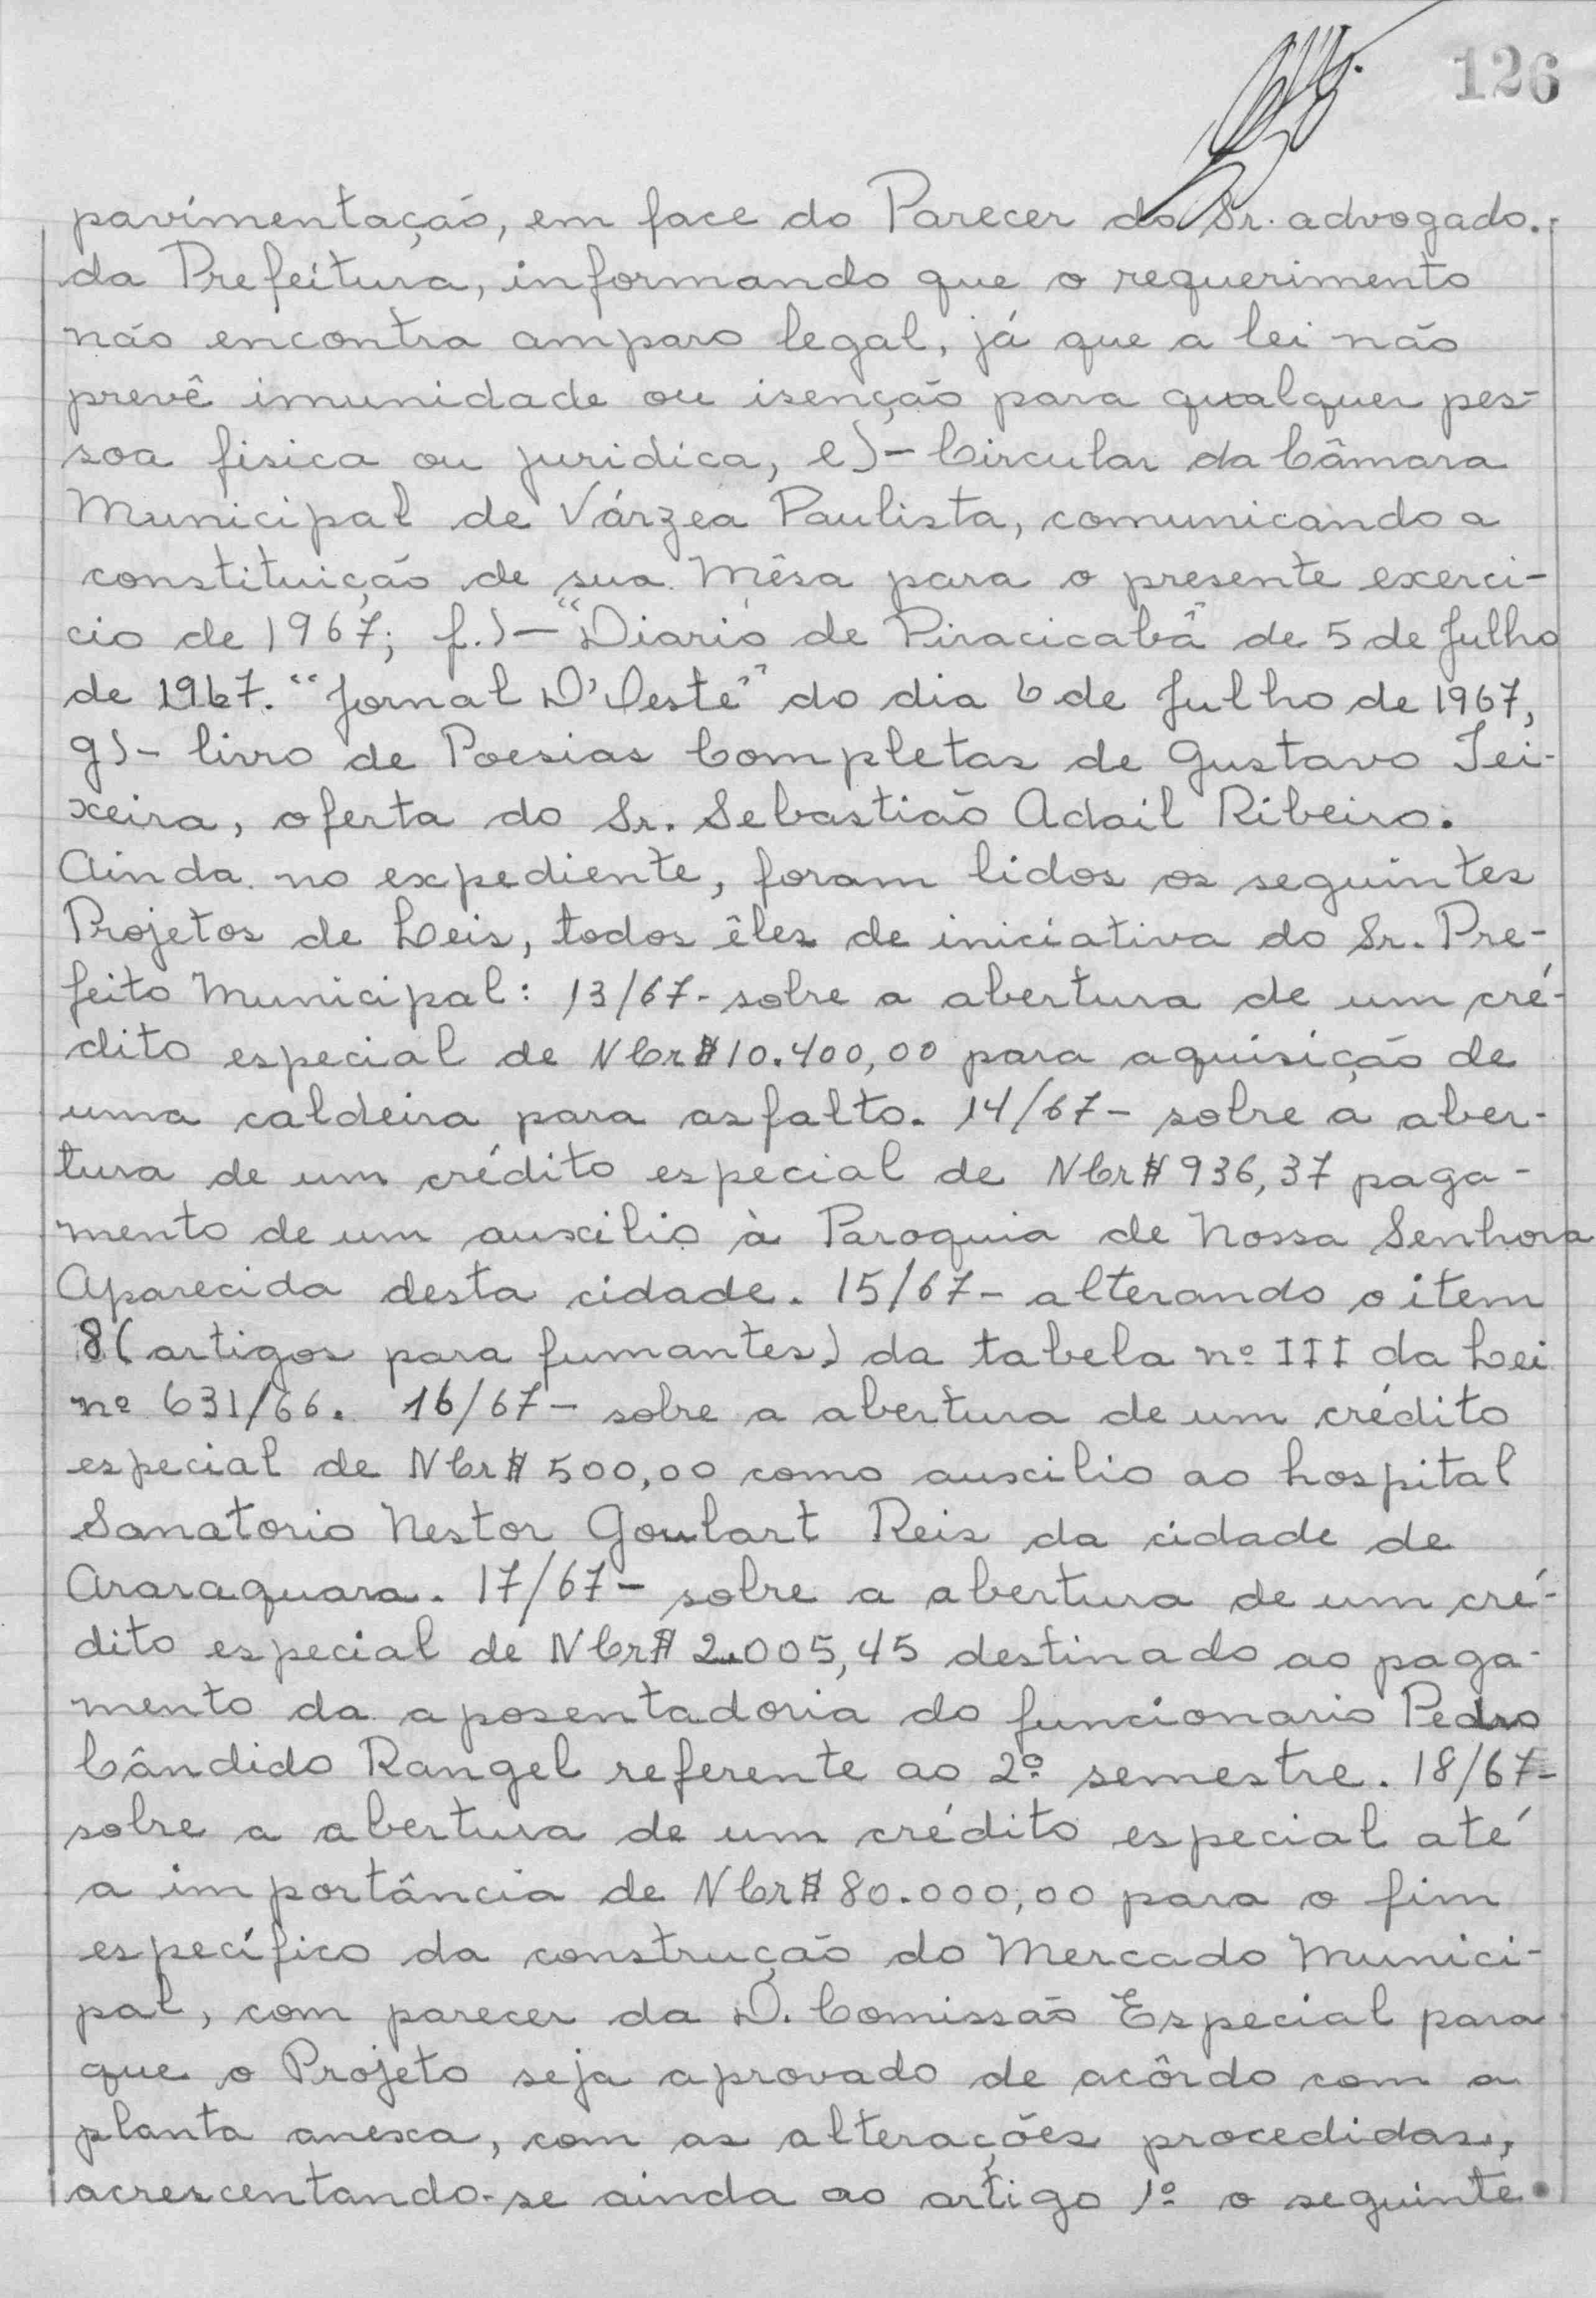 126
pavimentação, em face do Parecer do Sr. advogado.
da Prefeitura, informando que o requerimento
não encontra amparo legal, já que a lei não
prevê imunidade ou isenção para qualquer pes-
soa fisica ou juridica, e)- Circular da Câmara
Municipal de Várzea Paulista, comunicando a
constituição de sua Mêsa para o presente exerci-
cio de 1967; f.)- "Diario de Piracicaba" de 5 de Julho
de 1967. "Jornal D'Oeste" do dia 6 de Julho de 1967,
g)- livro de Poesias Completas de Gustavo Tei-
xeira, oferta do Sr. Sebastião Adail Ribeiro.
Ainda no expediente, foram lidos os seguintes
Projetos de Leis, todos êles de iniciativa do Sr. Pre-
feito Municipal: 13/67- sobre a abertura de um cré-
dito especial de NCr$ 10.400,00 para aquisição de
uma caldeira para asfalto. 14/67- sobre a aber-
tura de um crédito especial de NCr$ 936,37 paga-
mento de um auxilio à Paroquia de Nossa Senhora
Aparecida desta cidade. 15/67- alterando o item
8 (artigos para fumantes) da tabela nº III da Lei
nº 631/66. 16/67- sobre a abertura de um crédito
especial de NCr$ 500,00 como auxilio ao hospital
Sanatorio Nestor Goulart Reis da cidade de
Araraquara. 17/67- sobre a abertura de um cré-
dito especial de NCr$ 2.005,45 destinado ao paga-
mento da aposentadoria do funcionario Pedro
Cândido Rangel referente ao 2º semestre. 18/67-
sobre a abertura de um crédito especial até
a importância de NCr$ 80.000,00 para o fim
específico da construção do Mercado Munici-
pal, com parecer da D. Comissão Especial para
que o Projeto seja aprovado de acôrdo com a
planta anexa, com as alterações procedidas,
acrescentando-se ainda ao artigo 1º o seguinte